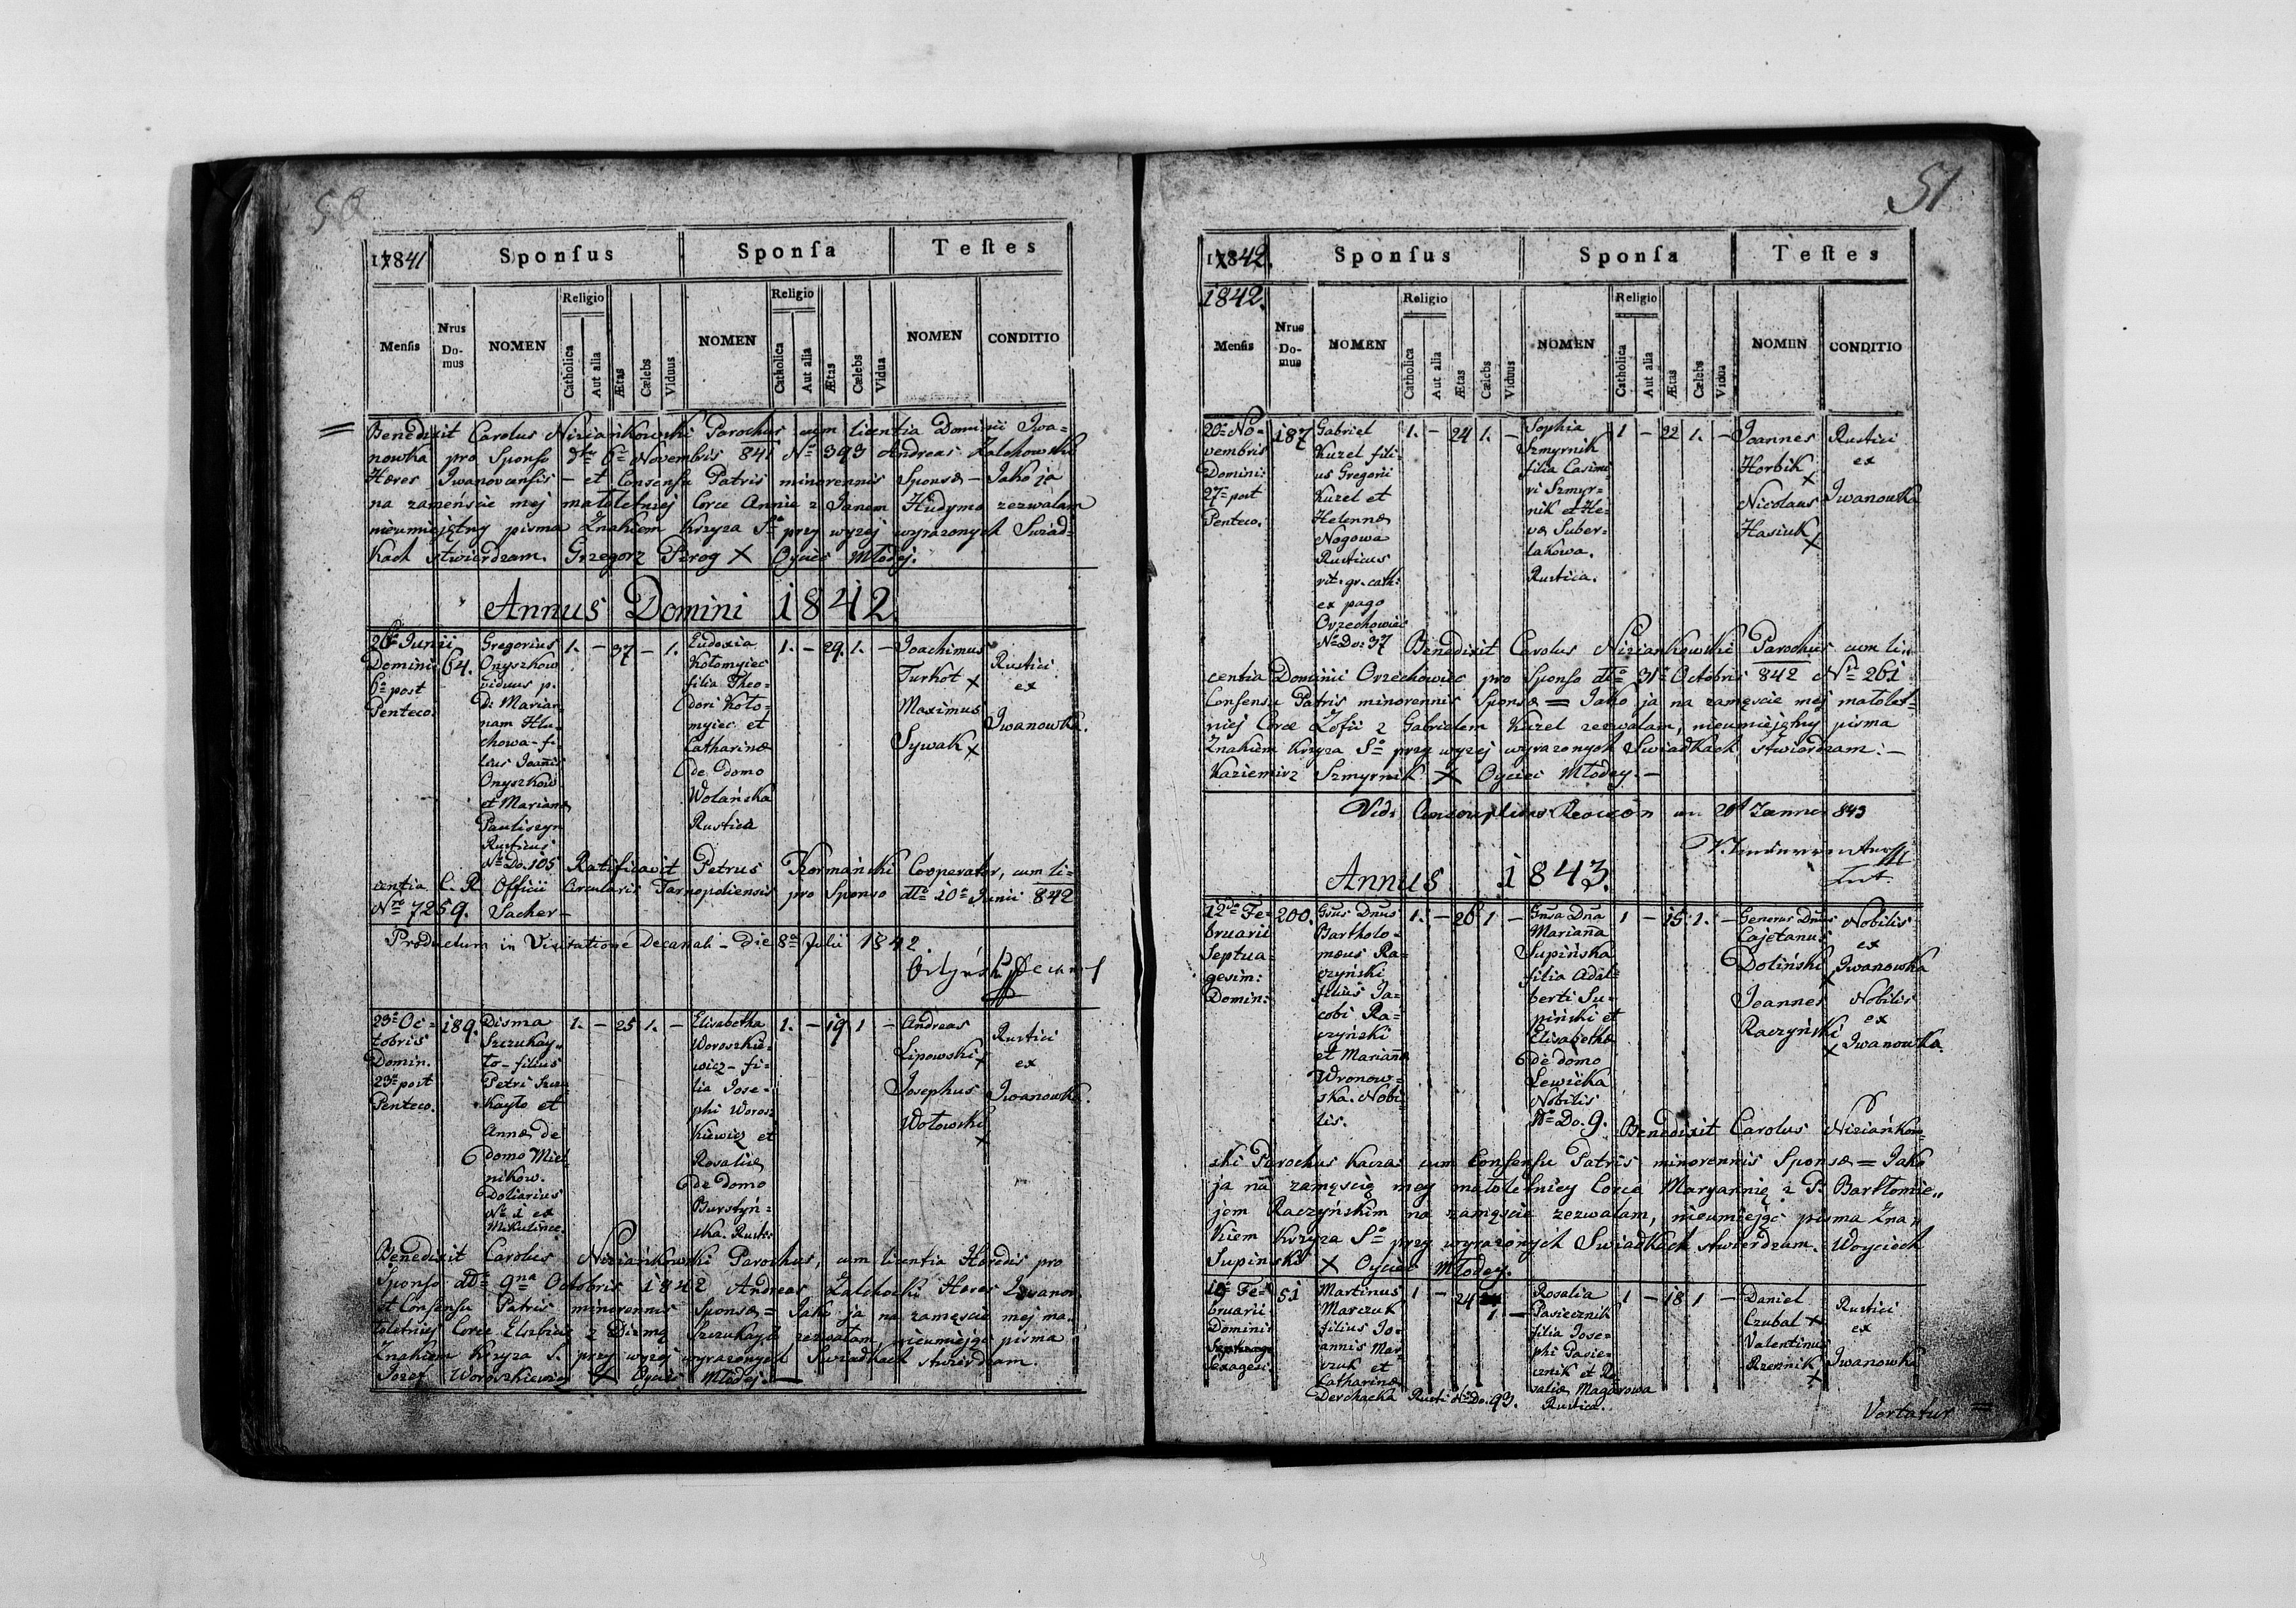 50
17841
Sponsus
Sponsa
Testes
Mensis
Nrus Do-mus
NOMEN
Religio
Catholica
Aut alia
Ætas
Cælebs
Viduus
NOMEN
Religio
Catholica
Aut alia
Ætas
Cælebs
Vidua
NOMEN
CONDITIO
Benedixit Carolus Niziańkowski Parochus cum licentia Dominii Iwa-
nowka pro Sponso dto 6a Novembris 841 No 393 Andreas Zalchowski
Hæres Iwanovcensis – et Consensu Patris minorennis Sponsæ – Jako ja
na zamenście mej małoletniej Corce Annie z Janem Hudymo zezwalam
nieumiejętny pisma Znakiem Krzyza So przy wyzej wyrazonych Swiad-
kach stwierdzam. Grzegorz Pirog X Oyciec Młodej.
Annus Domini 1842
26a Junii
Dominic
6a post
Penteco.
64.
Gregorius
Onyszkow
viduus p.
Di Marian
nam Hlu-
chowa – fi-
lius Joanis
Onyszkow
et Marianæ
Pauliszyn
Rusticus
No Do. 105
1. – 37 – 1.
Eudoxia
Kołomyiec
filia Theo-
dori Koło-
myiec et
Catharinæ
de Domo
Wolańska
Rustica
1. – 29. 1. –
Joachimus
Turkot x
Maximus
Sywak x
Rustici
ex
Iwanowka.
Ratificavit Petrus Kormański Cooperator, cum li-
centia C. R. Officii Circularis Tarnopoliensis pro Sponso dto 10a Junii 842
Nro 7259. Sacher –
Productum in Visitatione Decanali – Die 8a Julii 1842.
23a Oc-
tobris
Domin.
23a post
Penteco.
189.
Disma
Szczukay-
to – filius
Petri Szczu
kayto et
Annæ de
domo Miel-
nikow.
Doliarius
No 1 ex
Mikulince.
1. – 25 1. –
Elisabetha
Woroszkie-
wicz – fi-
lia Jose-
phi Worosz
kiewicz et
Rosaliæ
de Domo
Bursztyń-
ska. Rusti-
1. – 19 1 –
Andreas
Lipowski x
Josephus
Wołowski
x
Rustici
ex
Iwanowka.
Benedixit Carolus Niziańkowski Parochus, cum licentia Hæredis pro
Sponso dto 9na Octobris 1842 Andreas Zalchocki Hæres Iwanow.
et Consensu Patris minorennis Sponsæ = Jako ja na zamęscie mej ma-
loletniej Corce Elzbicie z Dizmą Szczukayto zezwalam, nieumiejąc pisma
Znakiem Krzyza S. przy wyzej wyrazonych Swiadkach stwierdzam.
Jozef Woroszkiewicz X Oyciec Młodej. –
51
17842.
Sponsus
Sponsa
Testes
1842.
Mensis
Nrus Do-mus
NOMEN
Religio
Catholica
Aut alia
Ætas
Cælebs
Viduus
NOMEN
Religio
Catholica
Aut alia
Ætas
Cælebs
Vidua
NOMEN
CONDITIO
20a No-
vembris
Domini:
27a post
Penteco.
187
Gabriel
Kuzel fili-
us Gregorii
Kuzel et
Helennæ
Nogowa
Rusticus
rit. gr. cath:
ex pago
Orzechowiec
No Do: 37
1. – 24 1. –
Sophia
Szmyrnik
filia Casimi-
ri Szmyr-
nik et He-
væ Suber-
lakowa.
Rustica.
1 – 22 1. –
Joannes
Horbik
x
Nicolaus
Hasiuk
x
Rustici
ex
Iwanowka
Benedixit Carolus Niziankowski Parochus cum li-
centia Dominii Orzechowiec pro Sponso dto 31a Octobris 842 No 261
Consensu Patris minorennis Sponsæ = Jako ja na zamęscie mej małolet-
niej Corce Zofii z Gabrielem Kuzel zezwalam, nieumiejętny pisma
Znakiem Krzyza So przy wyzej wyrazonych Swiadkach stwierdzam: –
Kaziemirz Szmyrnik X Oyciec Młodey. –
Annus 1843.
12a Fe-
bruarii
Septua-
gesim:
Domin:
200.
Gsus Dnus
Bartholo-
mæus Ra-
czyński
filius Ja-
cobi Ra-
czyński
et Mariannæ
Wronow-
ska. Nobi-
lis.
1. – 26 1 –
Gnsa Dna
Marianna
Supińska
filia Adal-
berti Su-
piński et
Elisabethæ
de domo
Lewicka
Nobilis
No Do. 9.
1 – 15. 1. –
Generus Dnus
Cajetanus
Doliński
x
Joannes
Raczyński
x
Nobilis
ex
Iwanowka
Nobilis
ex
Iwanowka.
Benedixit Carolus Niziańkow-
ski Parochus Kaczan: cum Consensu Patris minorennis Sponsæ = Jako
ja na zamęscię mey małoletniey Corce Maryannie z P. Bartłomie-
jem Raczyńskim na zamęscie zezwalam, nieumiejąc pisma Zna-
kiem Krzyza So przy wyrazonych Swiadkach stwierdzam. Woyciech
Supinski X Oyciec Młodey.
19a Fe-
bruarii
Dominic:
Sexages:
51
Martinus
Marczuk
filius Jo-
annis Mar-
czuk et
Catharinæ
Derchacka Rusti No Do. 93.
1 – 24 1 –
Rosalia
Pasiecznik
filia Jose-
phi Pasie-
cznik et Ro-
saliæ Magarowa
Rustica.
1 – 18 1 –
Daniel
Czubal x
Valentinus
Rzeznik
x
Rustici
ex
Iwanowka
Vertatur =